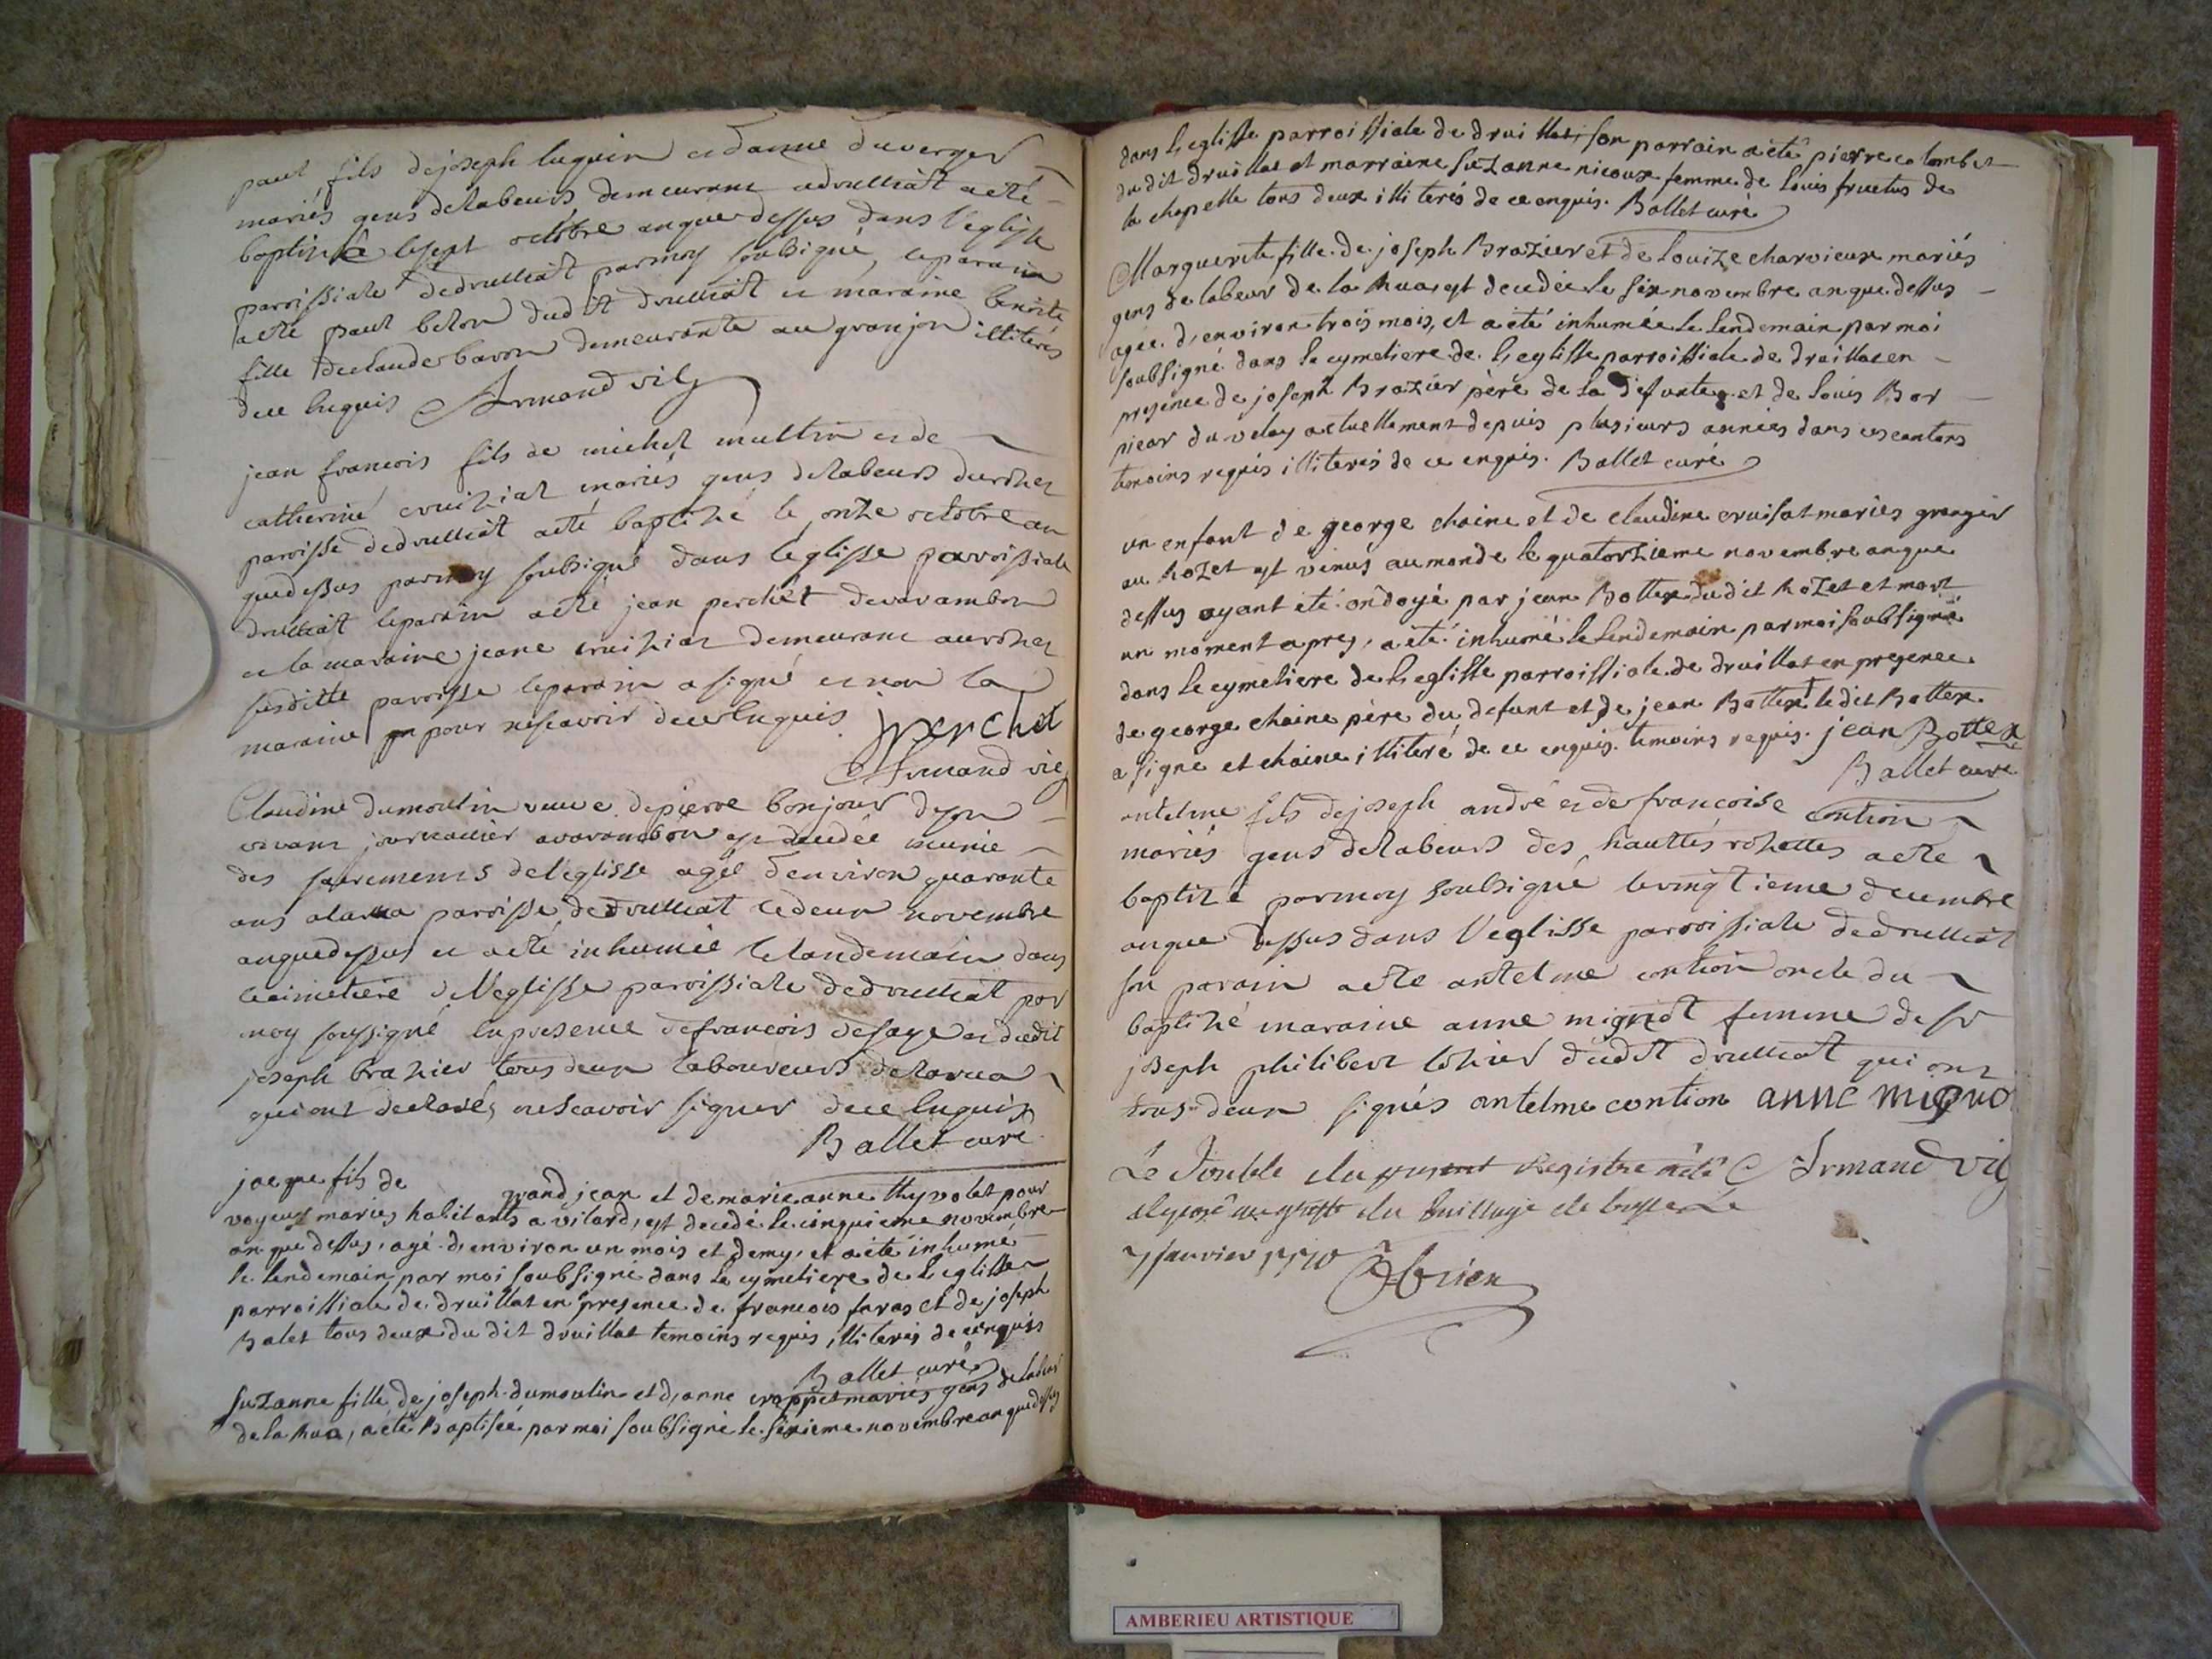 paul fils de joseph luquin et danne duverger
mariés gens delabeurs demeurant adrulliat a eté
baptizé le sept octobre anque dessus dans leglisse
paroissiale dedrulliat parmoy soubsigné, leparain
a eté paul belon dudit drulliat et maraine benoite
fille declaude bavon demeurante au granjon illiterés
dece enquis Armand vic
jean francois fils de michel multin et de
catherine cruiziat mariés gens delabeurs du
paroisse dedrulliat a eté baptizé le onze octobre an
quedessus parmoy soubsigné dans leglisse paroissiale
drulliat leparain a eté jean perchet devarambon
et la maraine jeane cruiziat demeurant au
susditte paroisse leparain a signé et non la
maraine pour nescavoir dece enquis. jperchet
Armand vic
Claudine dumoulin veuve depierre bonjour deson
vivant journallier avarambon est decedée munie
des sacremens deleglisse agée denviron quarante
ans alarua paroisse dedrulliat ledeux novembre
anquedessus et a eté inhumée lelandemain dans
lecimetiere deleglisse paroissiale dedrulliat par
moy soussigné en presence defrancois desaye et dudit
joseph brazier tous deux laboureurs delarua
qui ont declarés nescavoir signer dece enquis
Ballet curé
jacque fils de grand jean et de marie anne thyvolet pour
voyeur mariés habitants a vilard, est decedé le cinquieme novembre
an que dessus, agé d,environ un mois et demy, et a eté inhumé
le lendemain par moi soubsigné dans le cymetiere de l,eglisse
parroissiale de druillat en presence de francois favas et de joseph
Balet tous deux du dit druillat temoins requis, illiterés de ce enquis
Ballet curé
Suzanne fille de joseph dumoulin et d,anne croppet mariés gens de labeur
de la Rua, a eté Baptisée par moi soubsigné le sixieme novembre an quedessus
dans l,eglisse parroissiale de druillat, son parrain a eté pierre colombet
du dit druillat et marraine suzanne nicoux femme de louis fruetus de
la chapelle tous deux illiterés de ce enquis. Ballet curé
Marguerite fille de joseph Brazier et de louize charvieux mariés
gens de labeur de la Rua, est decedée le six novembre an que dessus
agée d,environ trois mois, et a eté inhumée le lendemain par moi
soubsigné dans le cymetiere de l,eglisse parroissiale de druillat en
presence de joseph Brazier père de la defunte et de louis Bor
picar du velay actuellement depuis plusieurs années dans ces cantons
temoins requis illiterés de ce enquis. Ballet curé
un enfant de george chaine et de claudine cruisat mariés granger
au Rozet est venus au monde le quatorzieme novembre an que
dessus ayant eté ondoyé par jean Bottex du dit Rozet et mort
un moment apres, a eté inhumé le lendemain par moi soubsigné
dans le cymetiere de l,eglisse parroissiale de druillat en presence
de george chaine père du defunt et de jean Bottex le dit Bottex
a signé et chaine illiteré de ce enquis. temoins requis. jean Bottex
Ballet curé
antelme fils dejoseph andré et defrancoise contion
mariés gens delabeurs des hauttes rozettes a eté
baptizé parmoy soubsigné levingtieme decembre
anque dessus dans leglisse parroissiale dedrulliat
son parain a eté antelme contion oncle du
baptizé maraine anne mignot femme de sr
joseph philibert dudit drulliat qui ont
tous deux signés antelme contion anne migno
Le Double du present Registre a été Armand vic
deposé au greffe du Bailliage de bresse le
7 janvier 1770